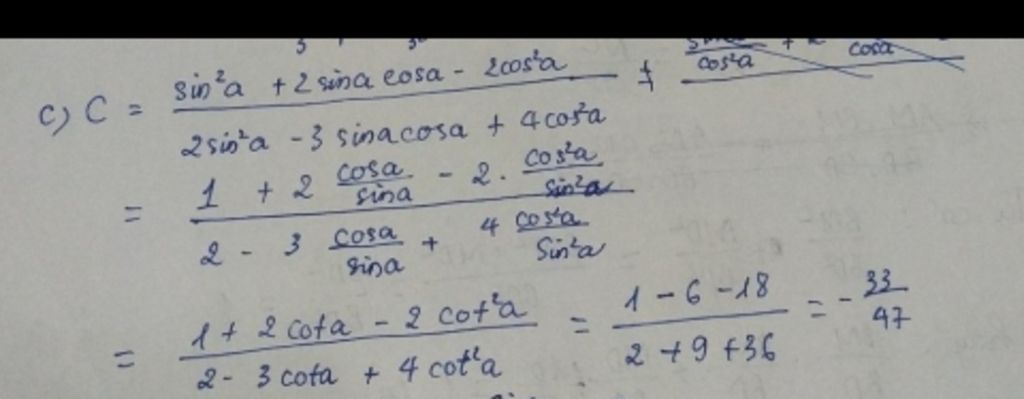 c) C = \frac{sin²a + 2 sina cosa - 2cos²a}{2sin²a - 3 sina cosa + 4cos²a}
= \frac{1 + 2 \frac{cosa}{sina} - 2. \frac{cos²a}{sin²a}}{2 - 3 \frac{cosa}{sina} + 4 \frac{cos²a}{sin²a}}
= \frac{1 + 2 cota - 2 cot²a}{2 - 3 cota + 4 cot²a} = \frac{1 - 6 - 18}{2 + 9 + 36} = - \frac{33}{47}